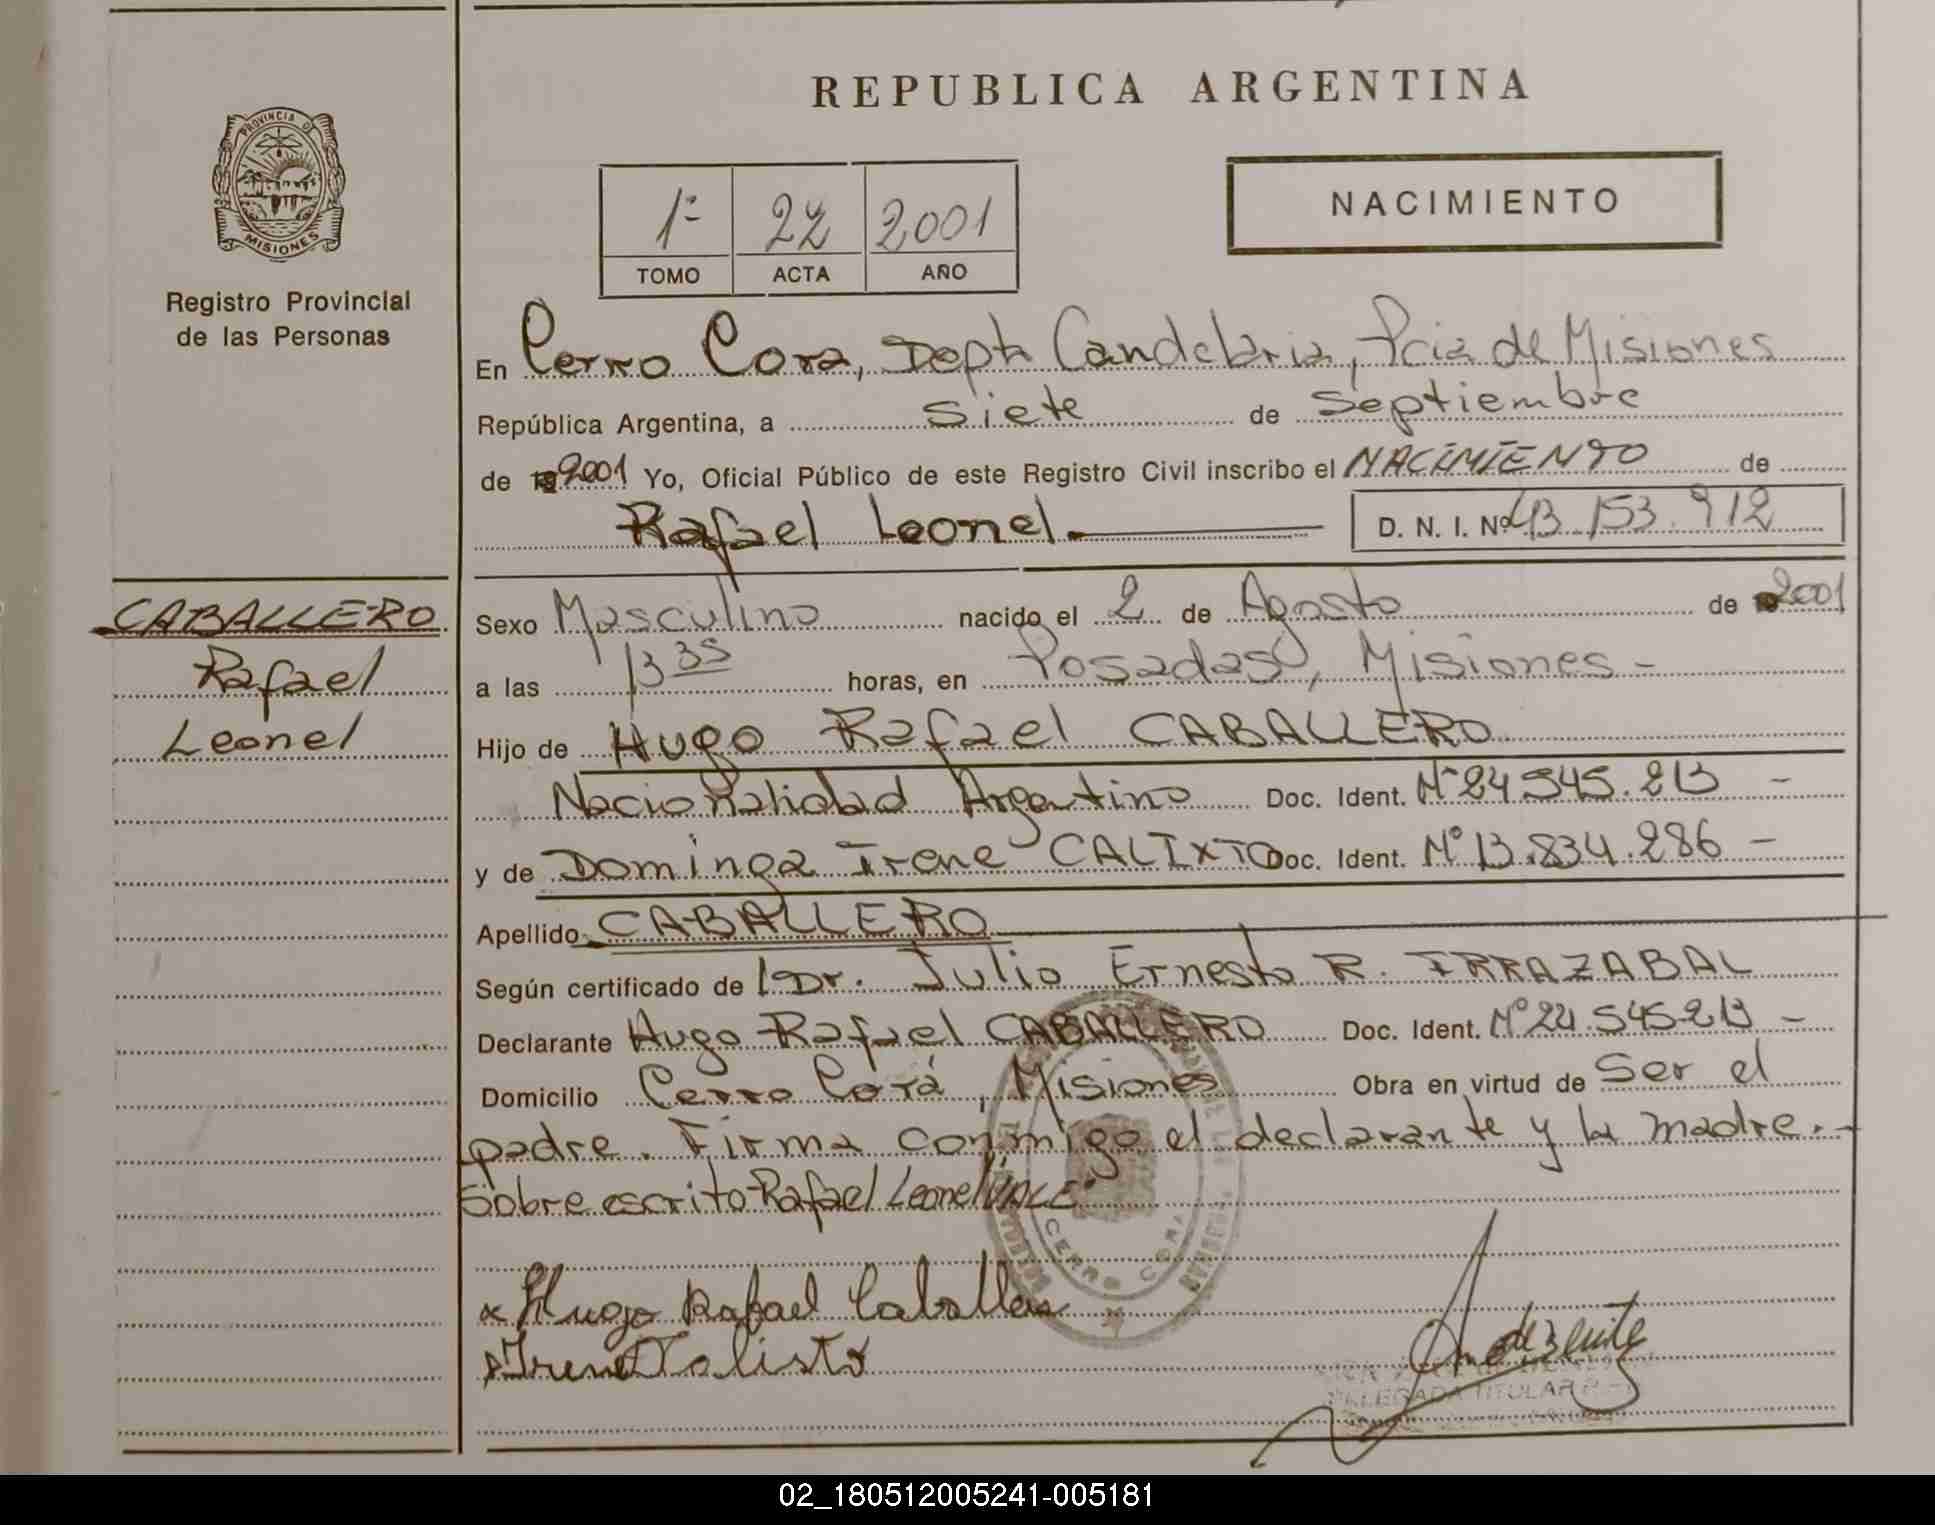 REPUBLICA ARGENTINA
PROVINCIA DE
MISIONES
Registro Provincial
de las Personas
NACIMIENTO
1ª 22 2001
TOMO ACTA AÑO
En Cerro Cora, Depto Candelaria, Pcia de Misiones
República Argentina, a siete de septiembre
de 2001 Yo, Oficial Público de este Registro Civil inscribo el NACIMIENTO de
Rafael Leonel.
D. N. I. Nº 43.153.912
CABALLERO
Rafael
Leonel
Sexo Masculino nacido el 2 de Agosto de 2001
a las 13 35 horas, en Posadas, Misiones -
Hijo de Hugo Rafael CABALLERO
Nacionalidad Argentino Doc. Ident. Nº 24.545.213 -
y de Dominga Irene CALIXTO Doc. Ident. Nº 13.834.286 -
Apellido CABALLERO
Según certificado de Dr. Julio Ernesto R. IRRAZABAL
Declarante Hugo Rafael CABALLERO Doc. Ident. Nº 24.545.213 -
Domicilio Cerro Corá, Misiones Obra en virtud de Ser el
padre. Firma conmigo el declarante y la madre.-
Sobre escrito-Rafael Leonel VALE"
CERRO CORA
x Hugo Rafael Caballero
x Irene Calisto
DELEGADA TITULAR
02_180512005241-005181